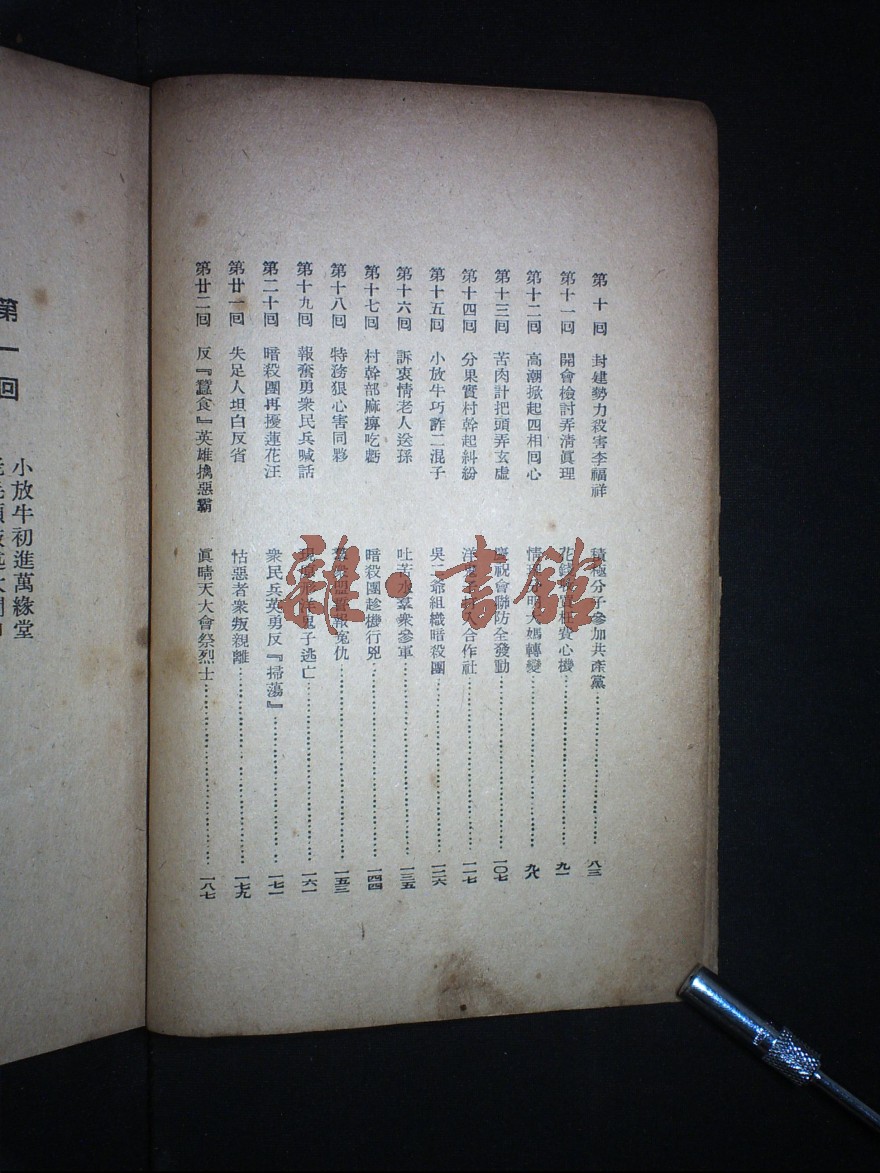 第十回 封建勢力殺害李福祥 積極分子參加共產黨 八三
第十一回 開會檢討弄清眞理 花錢 買 費心機 九一
第十二回 高潮掀起四相同心 情理分明大媽轉變 九九
第十三回 苦肉計把頭弄玄虛 慶祝會聯防全發動 一〇七
第十四回 分果實村幹起糾紛 洋鬼子 入合作社 一一七
第十五回 小放牛巧詐二混子 吳二爺組織暗殺團 一二六
第十六回 訴衷情老人送孫 吐苦水羣衆參軍 一三五
第十七回 村幹部麻痹吃虧 暗殺團趁機行兇 一四四
第十八回 特務狠心害同夥 羣衆盟誓報寃仇 一五三
第十九回 報奮勇衆民兵喊話 現原形洋鬼子逃亡 一六一
第二十回 暗殺團再擾蓮花汪 衆民兵英勇反『掃蕩』 一七一
第廿一回 失足人坦白反省 怙惡者衆叛親離 一七九
第廿二回 反『蠶食』英雄擒惡霸 眞晴天大會祭烈士 一八七
第一回
小放牛初進萬緣堂
雜·書館